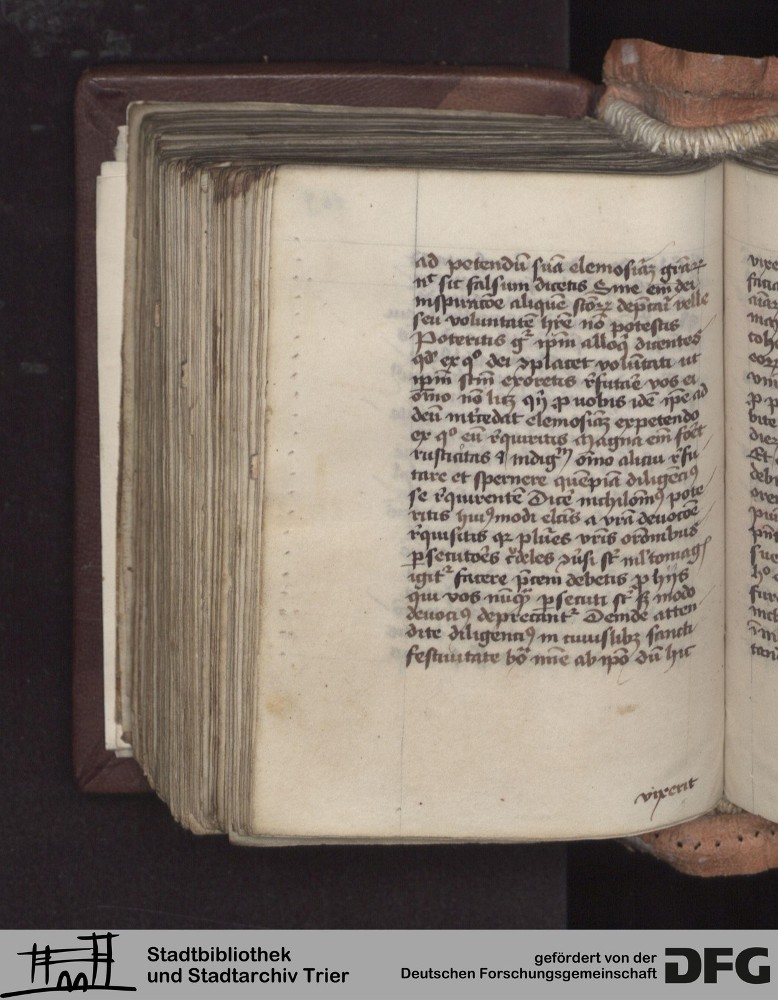 ad petendū suā elemosinā grāꝝ
nᶜ sic falsum dicetis Sine em̄ dei
inspiracōe aliquē sctōꝝ dep̄cari velle
seu voluntatē hr̄e nō potestis
Poteritis gͬ ip̄m alloq̄ dicentes
qd̄ ex qº dei ↄplacet volūtati ut
ip̄m sctm̄ exoretis r̄futare vos ei
om̄o nō licꝫ qn̄ ꝓ uobis idē ip̄e ad
deū int̄cedat elemosinā expetendo
ex qº eū r̄quiritis Magna em̄ foēt
rusticitas ⁊ om̄o alicui r̄fu
tare et spernere quēpiā diligēciꝰ
se r̄quirentē Dice nichilomꝰ pote
ritis huiꝰmodi elc̄is a vr̄a deuocōe
r̄quisitis qꝫ plūes vr̄is or̄onibus
ꝑsecutoēs
igitᷣ facere p̄cem debetis ꝓ hijs
qui vos nūqꝫ ꝑsecuti sᵗ sꝫ modo
deuociꝰ deprecantᷣ Deinde atten
dite diligenciꝰ in cuiuslibꝫ sancti
festiuitate bō ab ip̄o dū hic
vixerit
Stadtbibliothek
und Stadtarchiv Trier
gefördert von der
Deutschen Forschungsgemeinschaft
DFG